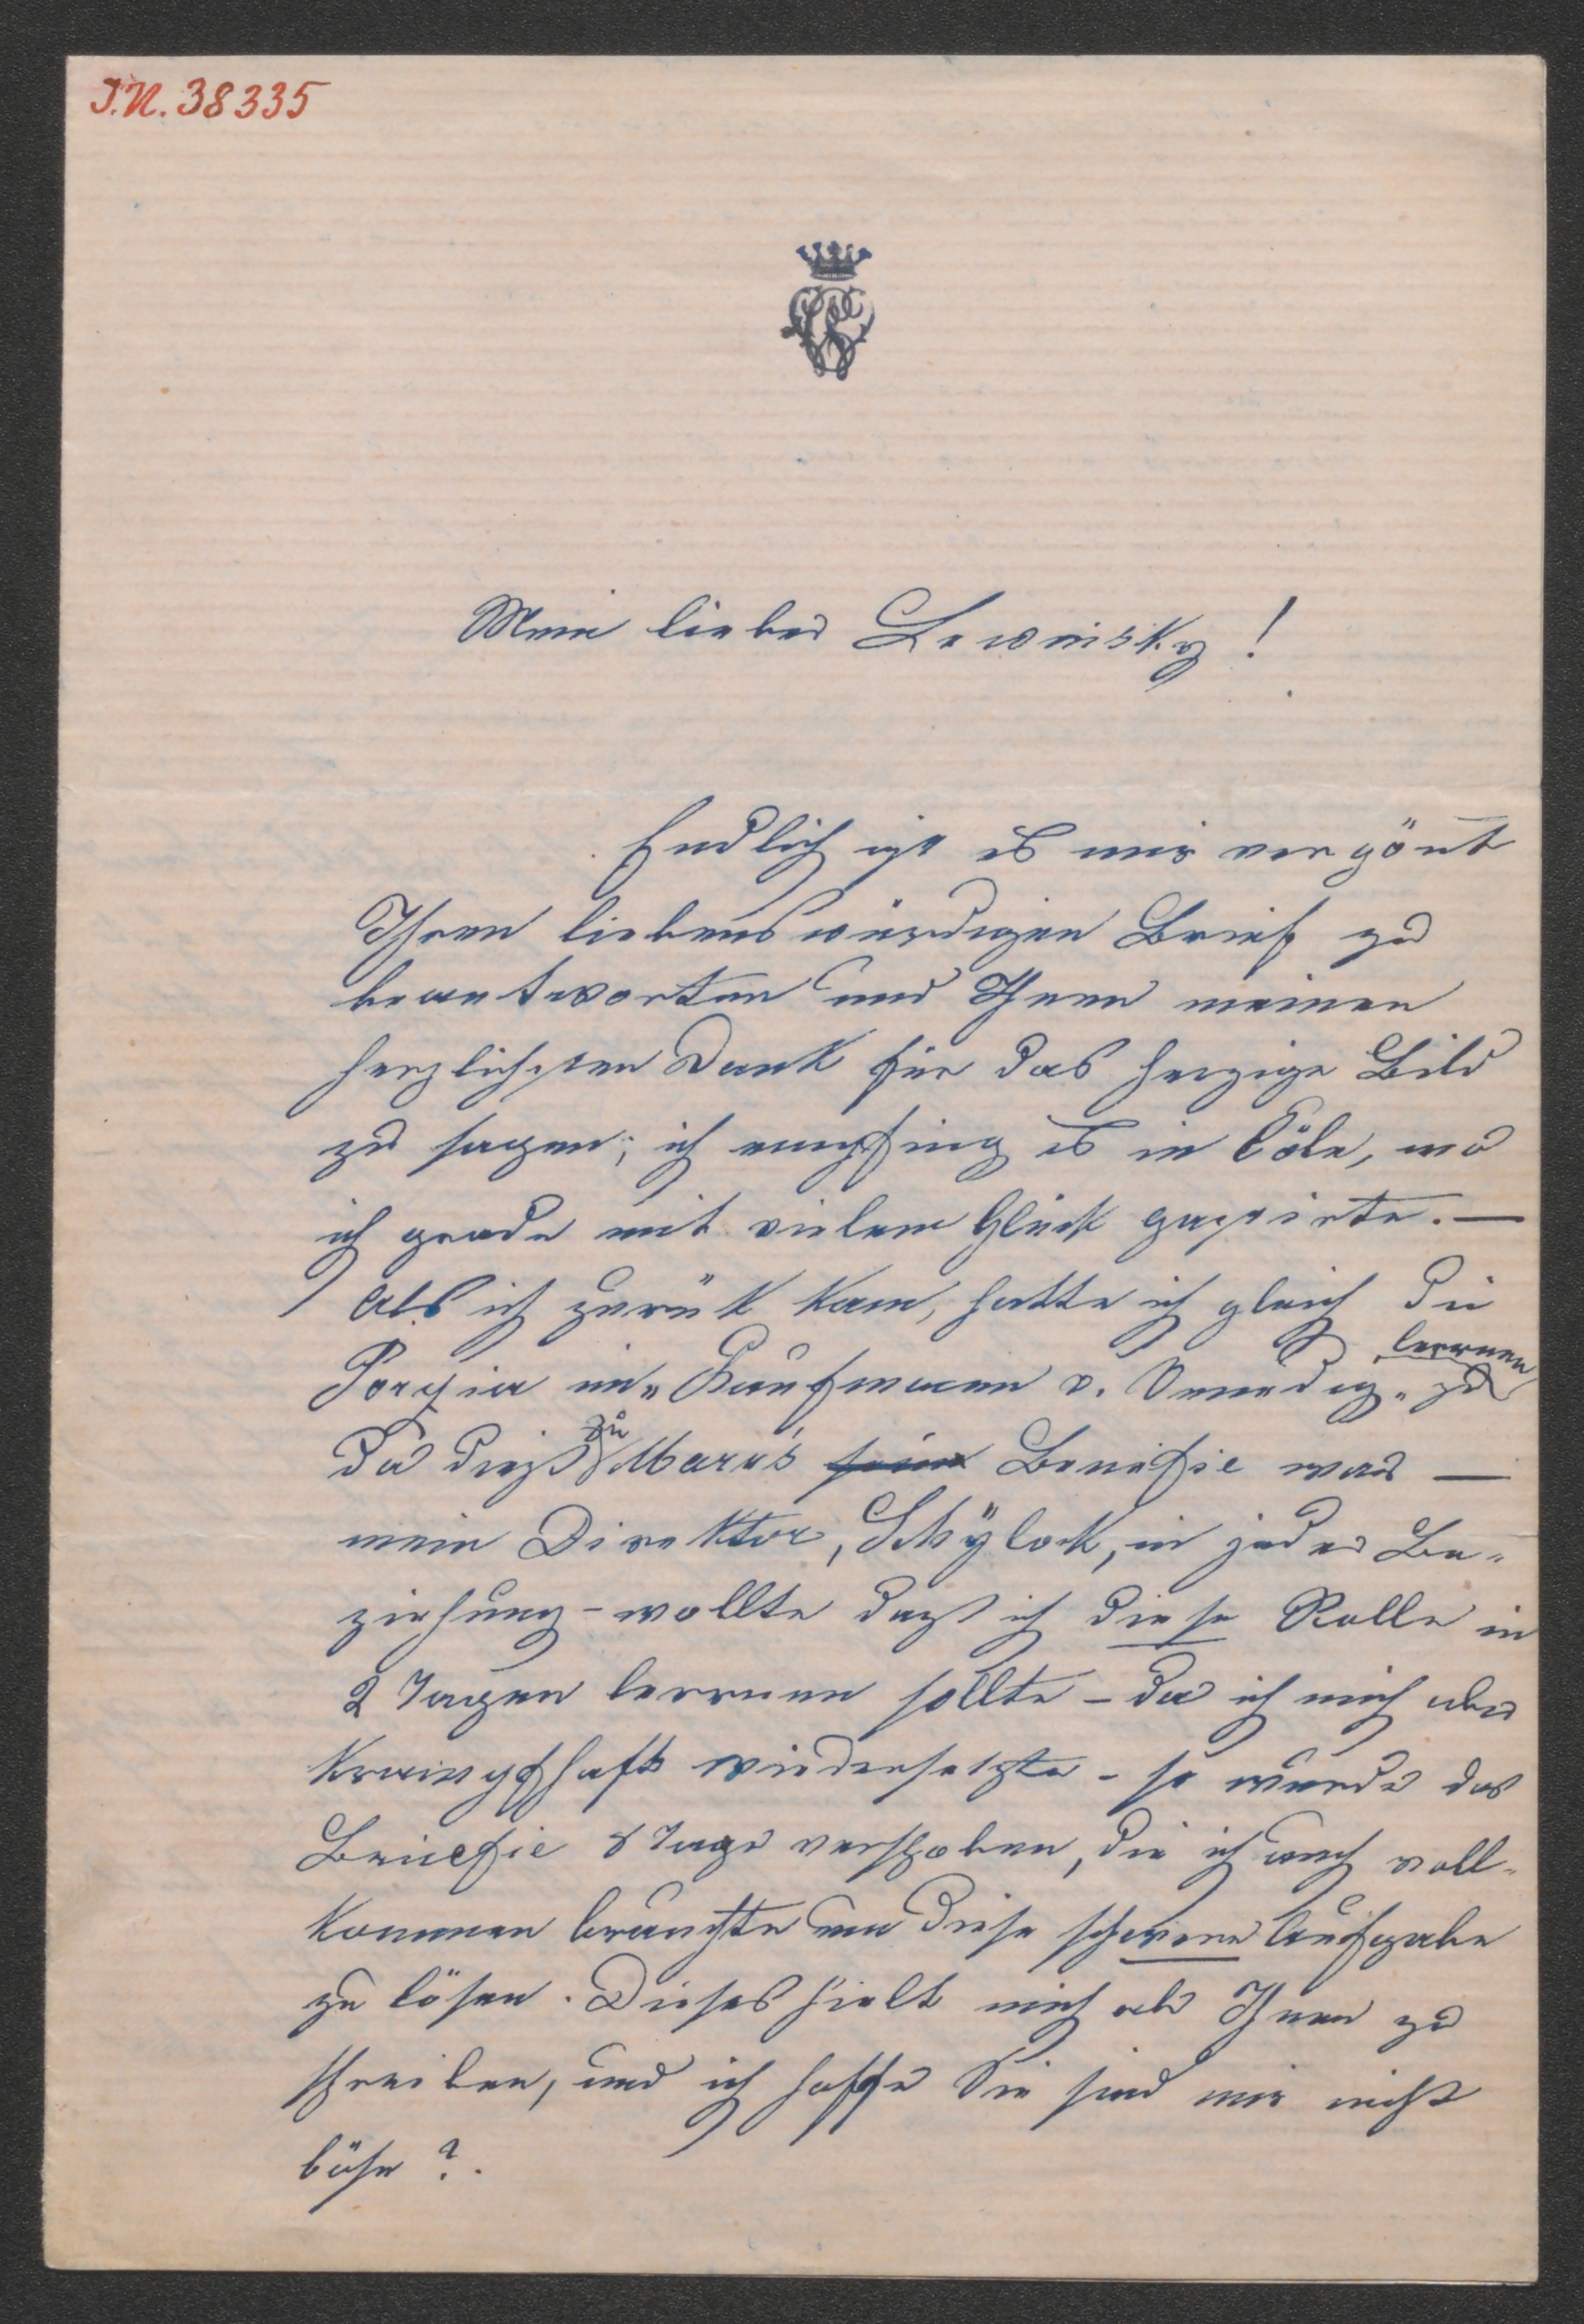 I.N. 38335
Mein lieber Lewinsky!
Endlich ist es mir vergönt
Ihren liebenswürdigen Brief zu
beantworten und Ihnen meinen
herzlichsten Dank für das herzige Bild
zu sagen; ich empfing es in Cöln, wo
ich grade mit vielem Glück gastirte. —
Als ich zurük kam, hatte ich gleich die
Porzia im „Kaufmann v. Venedig„ zu lernen
da dieß zu Marr's sein Benefic war —
mein Direktor, Schÿlok, in jeder Be-
ziehung - wollte daß ich diese Rolle in
2 Tagen lernen sollte - da ich mich aber
krampfhaft wiedersetzte - so wurde das
Benefic 8 Tage verschoben, die ich auch voll-
kommen brauchte um diese schwere Aufgabe
zu lösen. Dieses hielt mich ab Ihnen zu
schreiben, und ich hoffe Sie sind mir nicht
böse?.